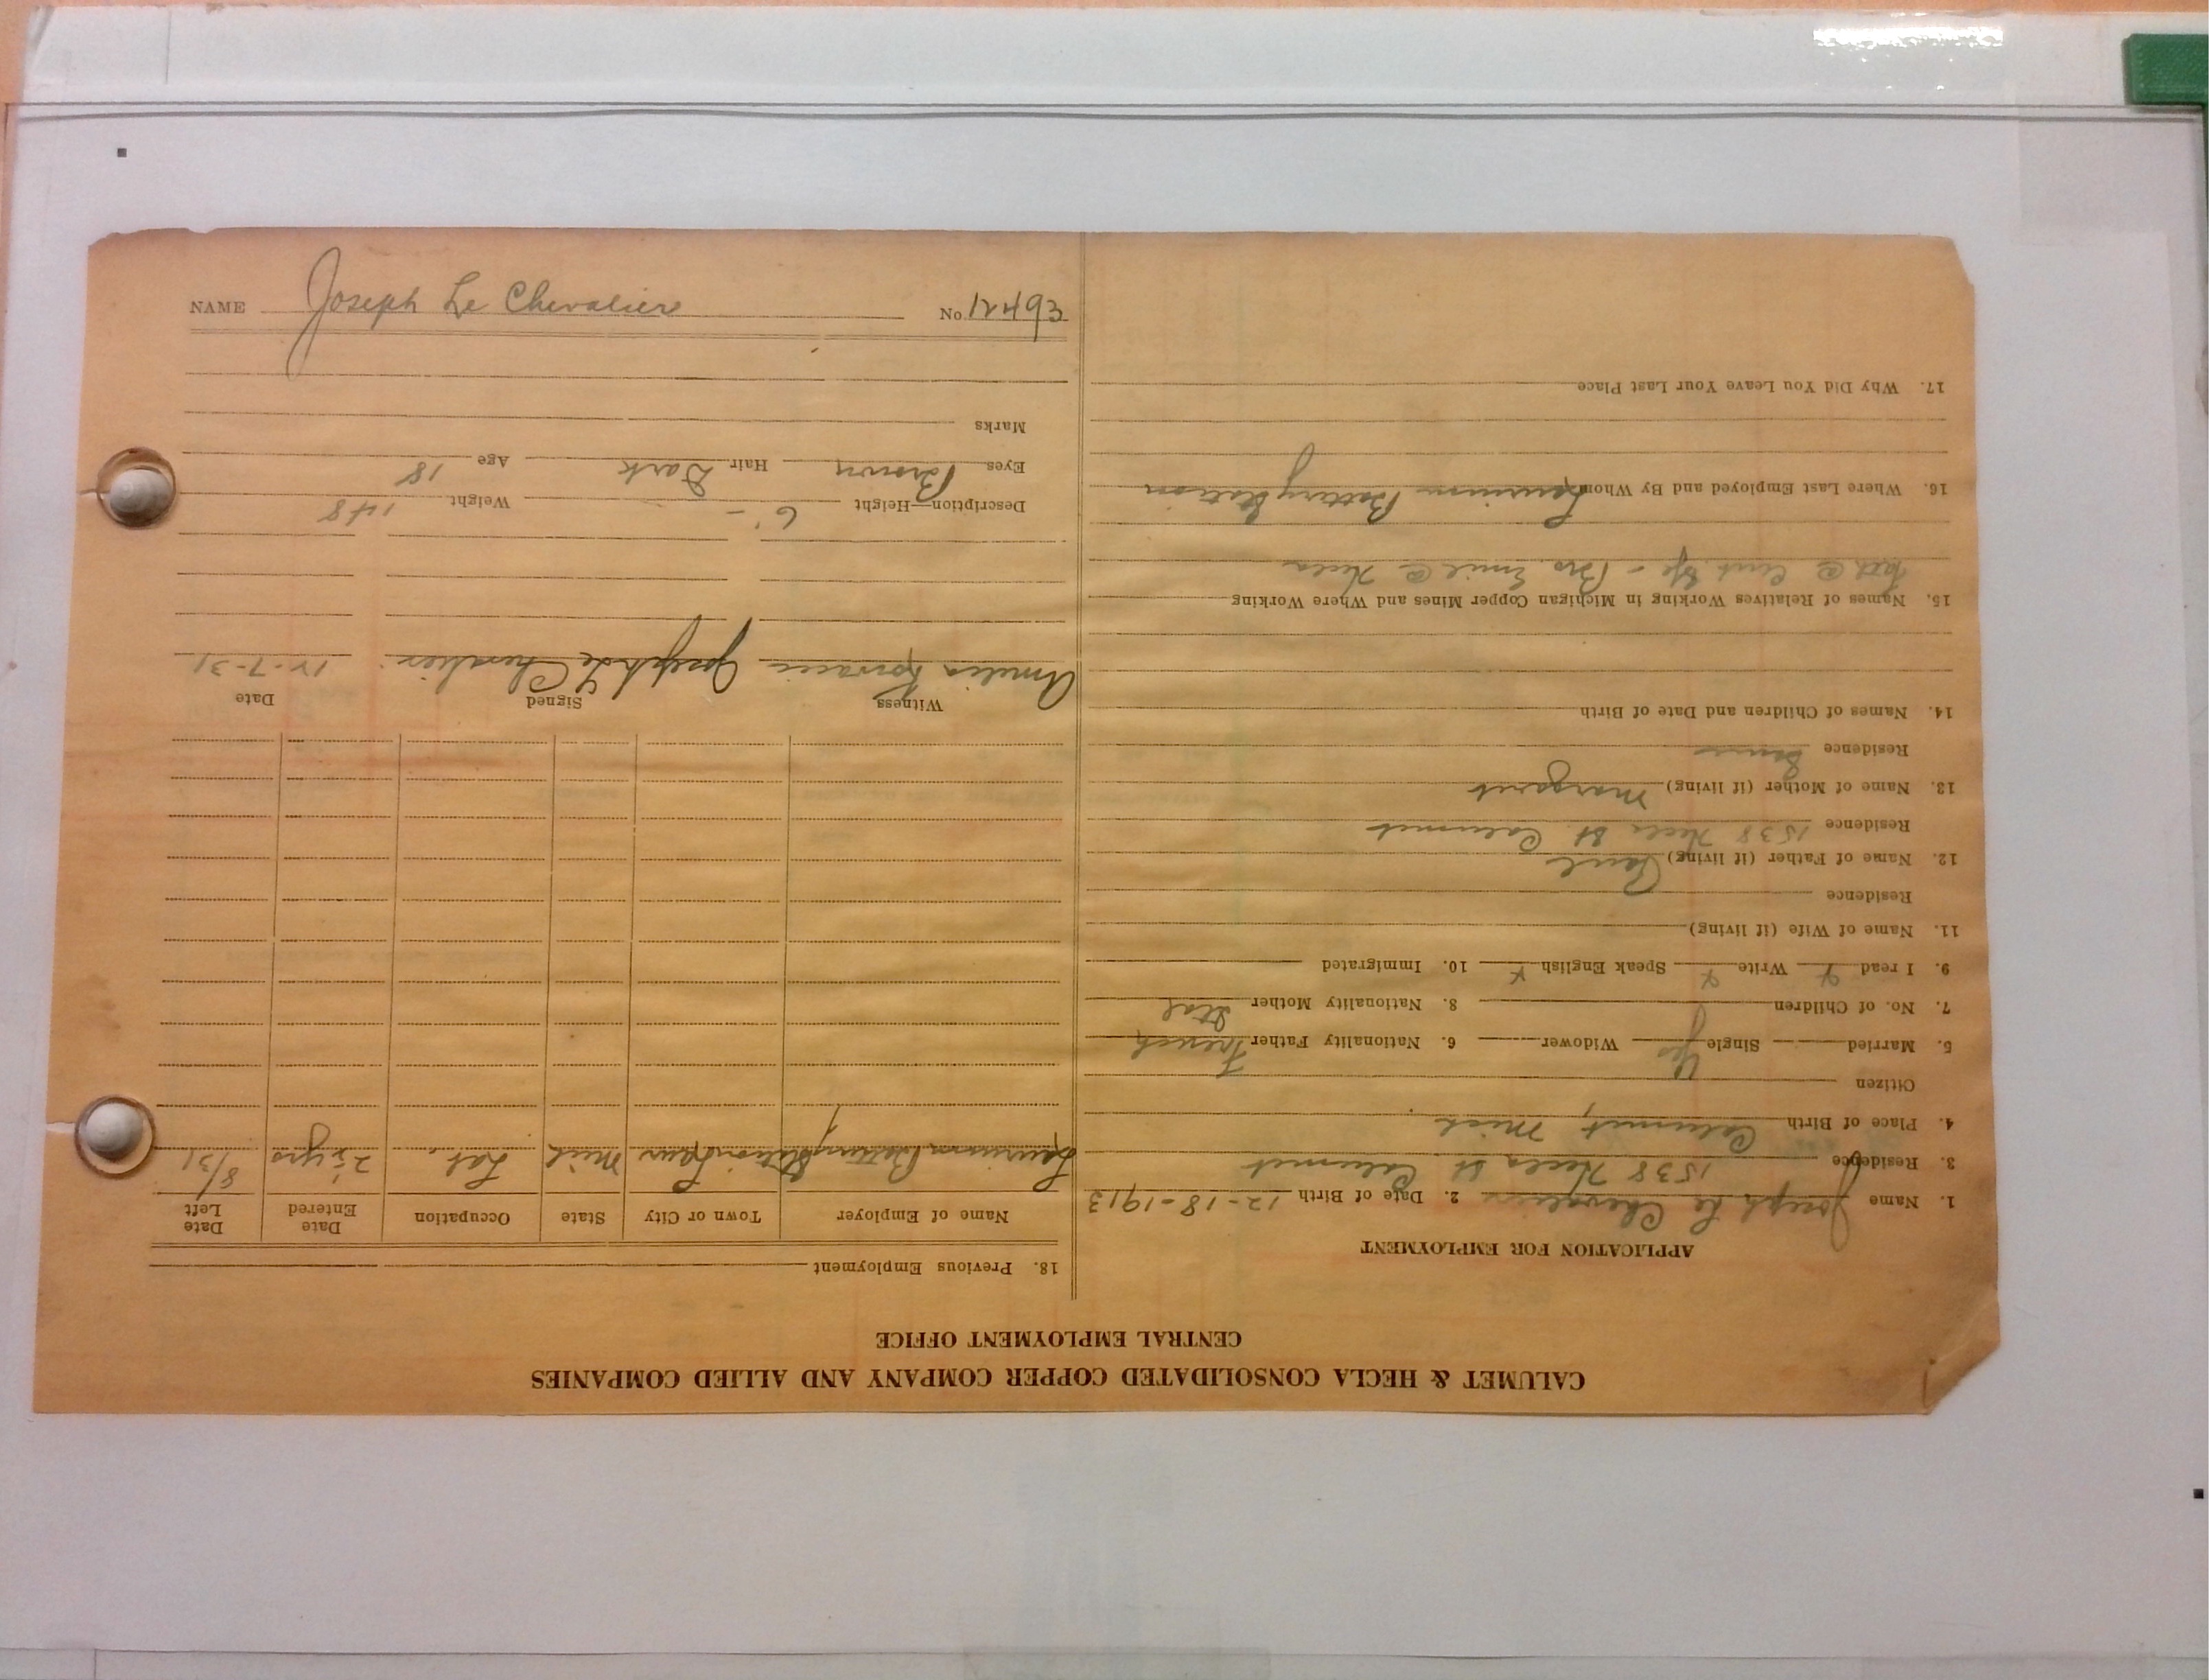 CALUMET & HECLA CONSOLIDATED COPPER COMPANY AND ALLIED COMPANIES
CENTRAL EMPLOYMENT OFFICE
APPLICATION FOR EMPLOYMENT
1. Name Joseph Le Chevalier 2. Date of Birth 12-18-1913
3. Residence 1538 Hecla St Calumet
4. Place of Birth Calumet, Mich
Citizen
5. Married Single Yes Widower 6. Nationality Father French
7. No. of Children 8. Nationality Mother Ital
9. I read x Write x Speak English x 10. Immigrated
11. Name of Wife (if living)
Residence
12. Name of Father (if living) Paul
Residence 1538 Hecla St. Calumet
13. Name of Mother (if living) Margaret
Residence Same
14. Names of Children and Date of Birth
15. Names of Relatives Working in Michigan Copper Mines and Where Working
Fact @ - Bro. Emil @ Hecla
16. Where Last Employed and By Whom Laurium Battery Station
17. Why Did You Leave Your Last Place
18. Previous Employment
Name of Employer Town or City State Occupation Date Entered Date Left
Laurium Battery Station Laur Mich Lab. 2½ yrs 8/31
Witness Signed Date
Amelia Joseph Le Chevalier 12-7-31
Description—Height 6'- Weight 148
Eyes Brown Hair Dark Age 18
Marks
NAME Joseph Le Chevalier No 12493